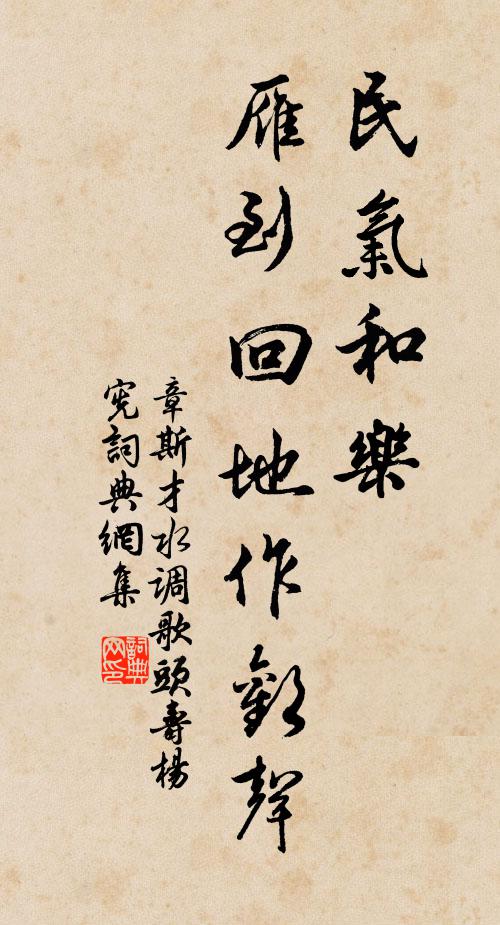 民氣和樂
雁到回地作歡聲
章斯才水調歌頭壽楊
宪詞典網集
詞典
网印